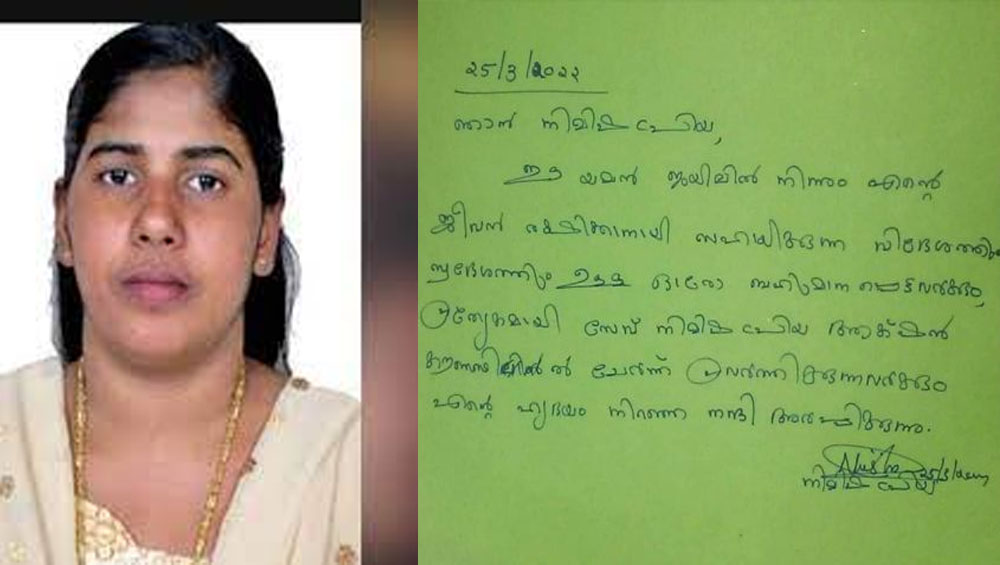 25/3/2022
ഞാൻ നിമിഷ പ്രിയ,
ഈ യമൻ ജയിലിൽ നിന്നും എന്റെ
ജീവൻ രക്ഷിക്കാനായി സഹായിക്കുന്ന വിദേശത്തും
സ്വദേശത്തും ഉള്ള ഓരോ ബഹുമാനപ്പെട്ടവർക്കും,
പ്രത്യേകമായി സേവ് നിമിഷ പ്രിയ ആക്ഷൻ
കൗൺസിലിൽ ചേർന്ന് പ്രവർത്തിക്കുന്നവർക്കും
എന്റെ ഹൃദയം നിറഞ്ഞ നന്ദി അർപ്പിക്കുന്നു.
നിമിഷ പ്രിയ